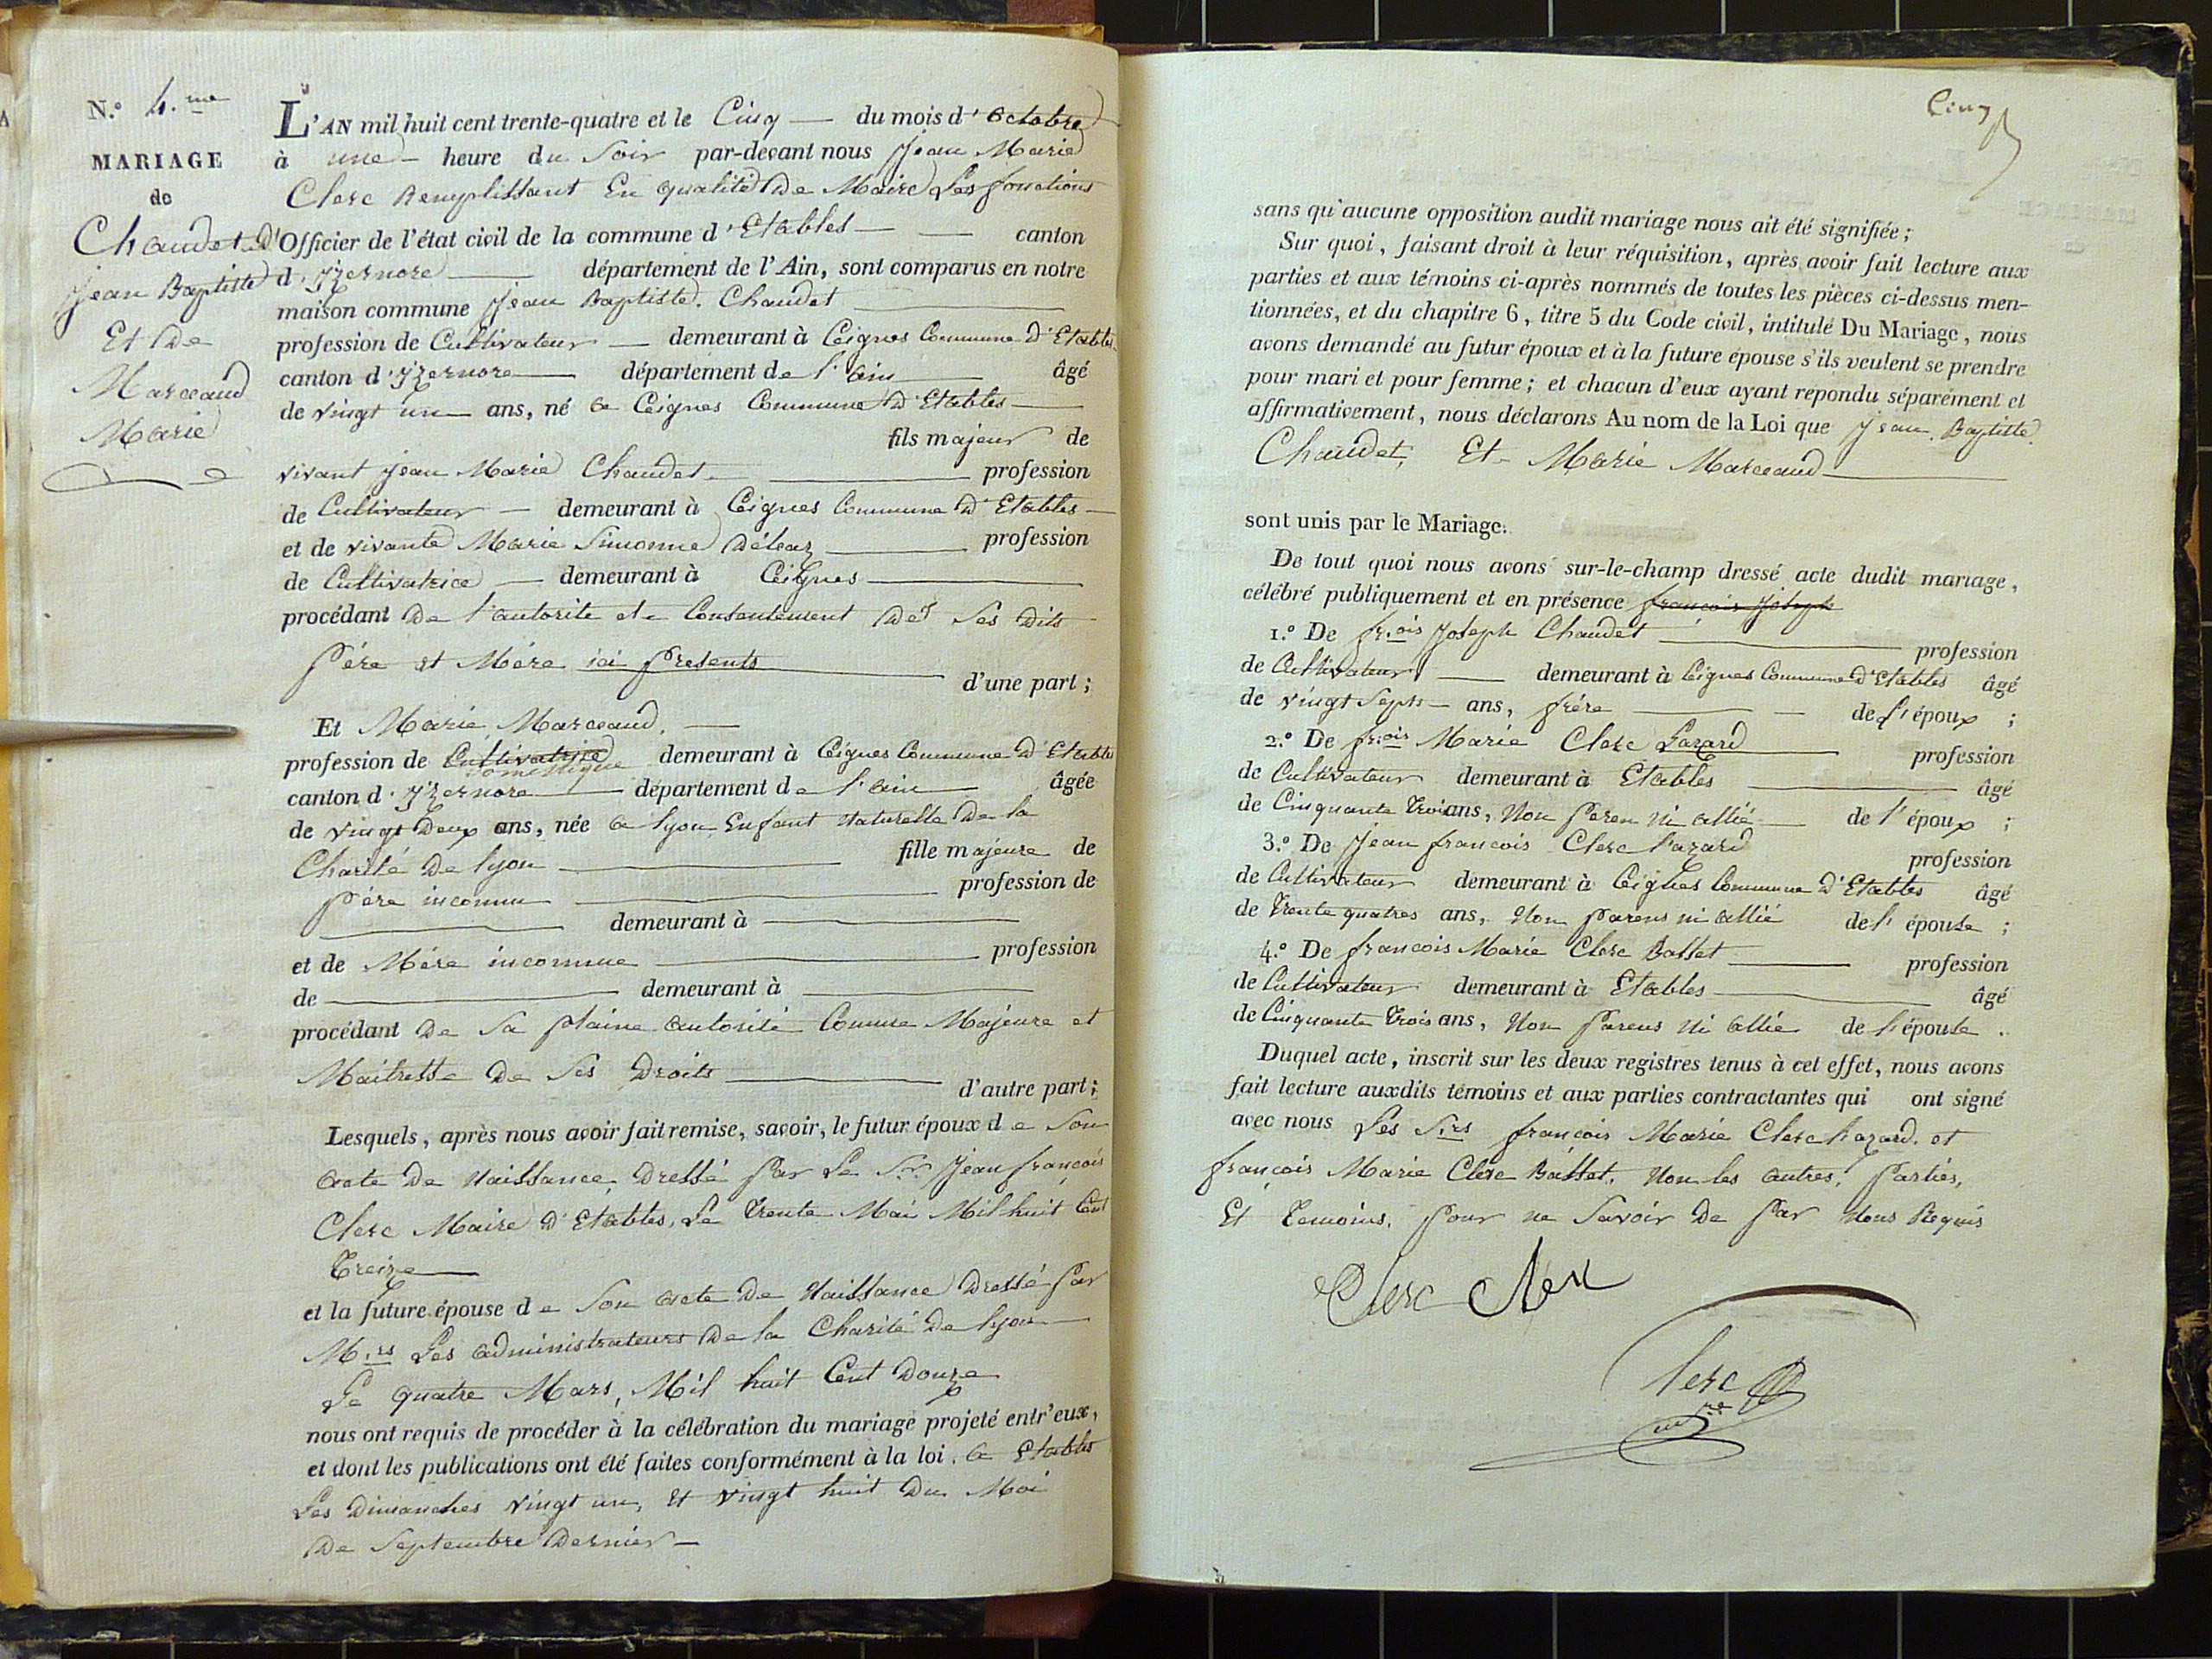 N.° 4.me
MARIAGE
de
Chaudet
Jean Baptiste
Et De
Marceaud
Marie
L'AN mil huit cent trente-quatre et le Cinq du mois d'Octobre
à une heure du Soir par-devant nous Jean Marie
Clerc Remplissant En qualité De Maire Les fonctions
d'Officier de l'état civil de la commune d'Etables canton
d'Izernore département de l'Ain, sont comparus en notre
maison commune Jean Baptiste. Chaudet
profession de Cultivateur demeurant à Ceignes Commune D'Etables
canton d'Izernore département de l'ain âgé
de vingt un ans, né a Ceignes Commune D'Etables
fils majeur de
vivant Jean Marie Chaudet profession
de Cultivateur demeurant à Ceignes Commune D'Etables
et de vivante Marie Simonne Déléaz profession
de Cultivatrice demeurant à Ceignes
procédant De l'autorite et Consentement De Ses Dits
Pére et Mére ici Presents
d'une part;
Et Marie Marceaud.
profession de Cultivatrice Domestique demeurant à Ceignes Commune D'Etables
canton d'Izernore département de l'ain âgée
de vingt Deux ans, née a lyon Enfant Naturelle De la
Charité De lyon fille majeure de
Pére inconnu profession de
demeurant à
et de Mére inconnue profession
de demeurant à
procédant De Sa plaine autorité Comme Majeure et
Maitresse De Ses Droits
d'autre part;
Lesquels, après nous avoir fait remise, savoir, le futur époux de Son
acte De Naissance, Dressé Par Le S.r Jean françois
Clerc Maire D'Etables, Le Trente Mai Mil huit Cent
Treize
et la future épouse de Son acte De Naissance Dressé Par
M.rs Les administrateurs De la Charité De lyon
Le quatre Mars, Mil huit Cent Douze
nous ont requis de procéder à la célébration du mariage projeté entr'eux,
et dont les publications ont été faites conformément à la loi. a Etables
Les Dimanches vingt un, Et vingt huit Du Moi
De Septembre Dernier
Cinq
sans qu'aucune opposition audit mariage nous ait été signifiée;
Sur quoi, faisant droit à leur réquisition, après avoir fait lecture aux
parties et aux témoins ci-après nommés de toutes les pièces ci-dessus men-
tionnées, et du chapitre 6, titre 5 du Code civil, intitulé Du Mariage, nous
avons demandé au futur époux et à la future épouse s'ils veulent se prendre
pour mari et pour femme; et chacun d'eux ayant répondu séparément et
affirmativement, nous déclarons Au nom de la Loi que Jean Baptiste
Chaudet, Et Marie Marceaud
sont unis par le Mariage.
De tout quoi nous avons sur-le-champ dressé acte dudit mariage,
célébré publiquement et en présence françois Joseph
1.° De fr.ois Joseph Chaudet profession
de Cultivateur demeurant à Ceignes Commune D'Etables âgé
de vingt Septs ans, frére de l'époux ;
2.° De fr.ois Marie Clerc Lazard profession
de Cultivateur demeurant à Etables âgé
de Cinquante Trois ans, Non Paren Ni allié de l'époux ;
3.° De Jean francois Clerc Lazard profession
de Cultivateur demeurant à Ceignes Commune D'Etables âgé
de Trente quatres ans, Non Parens ni allié de l'épouse ;
4.° De francois Marie Clerc Basset profession
de Cultivateur demeurant à Etables âgé
de Cinquante Trois ans, Non Parens Ni allié de l'épouse .
Duquel acte, inscrit sur les deux registres tenus à cet effet, nous avons
fait lecture auxdits témoins et aux parties contractantes qui ont signé
avec nous Les S.rs françois Marie Clerc Lazard. et
françois Marie Clerc Basset. Non les autres, Parties,
Et Temoins. Pour ne Savoir De Par Nous Requis
Clerc Clerc
Clerc